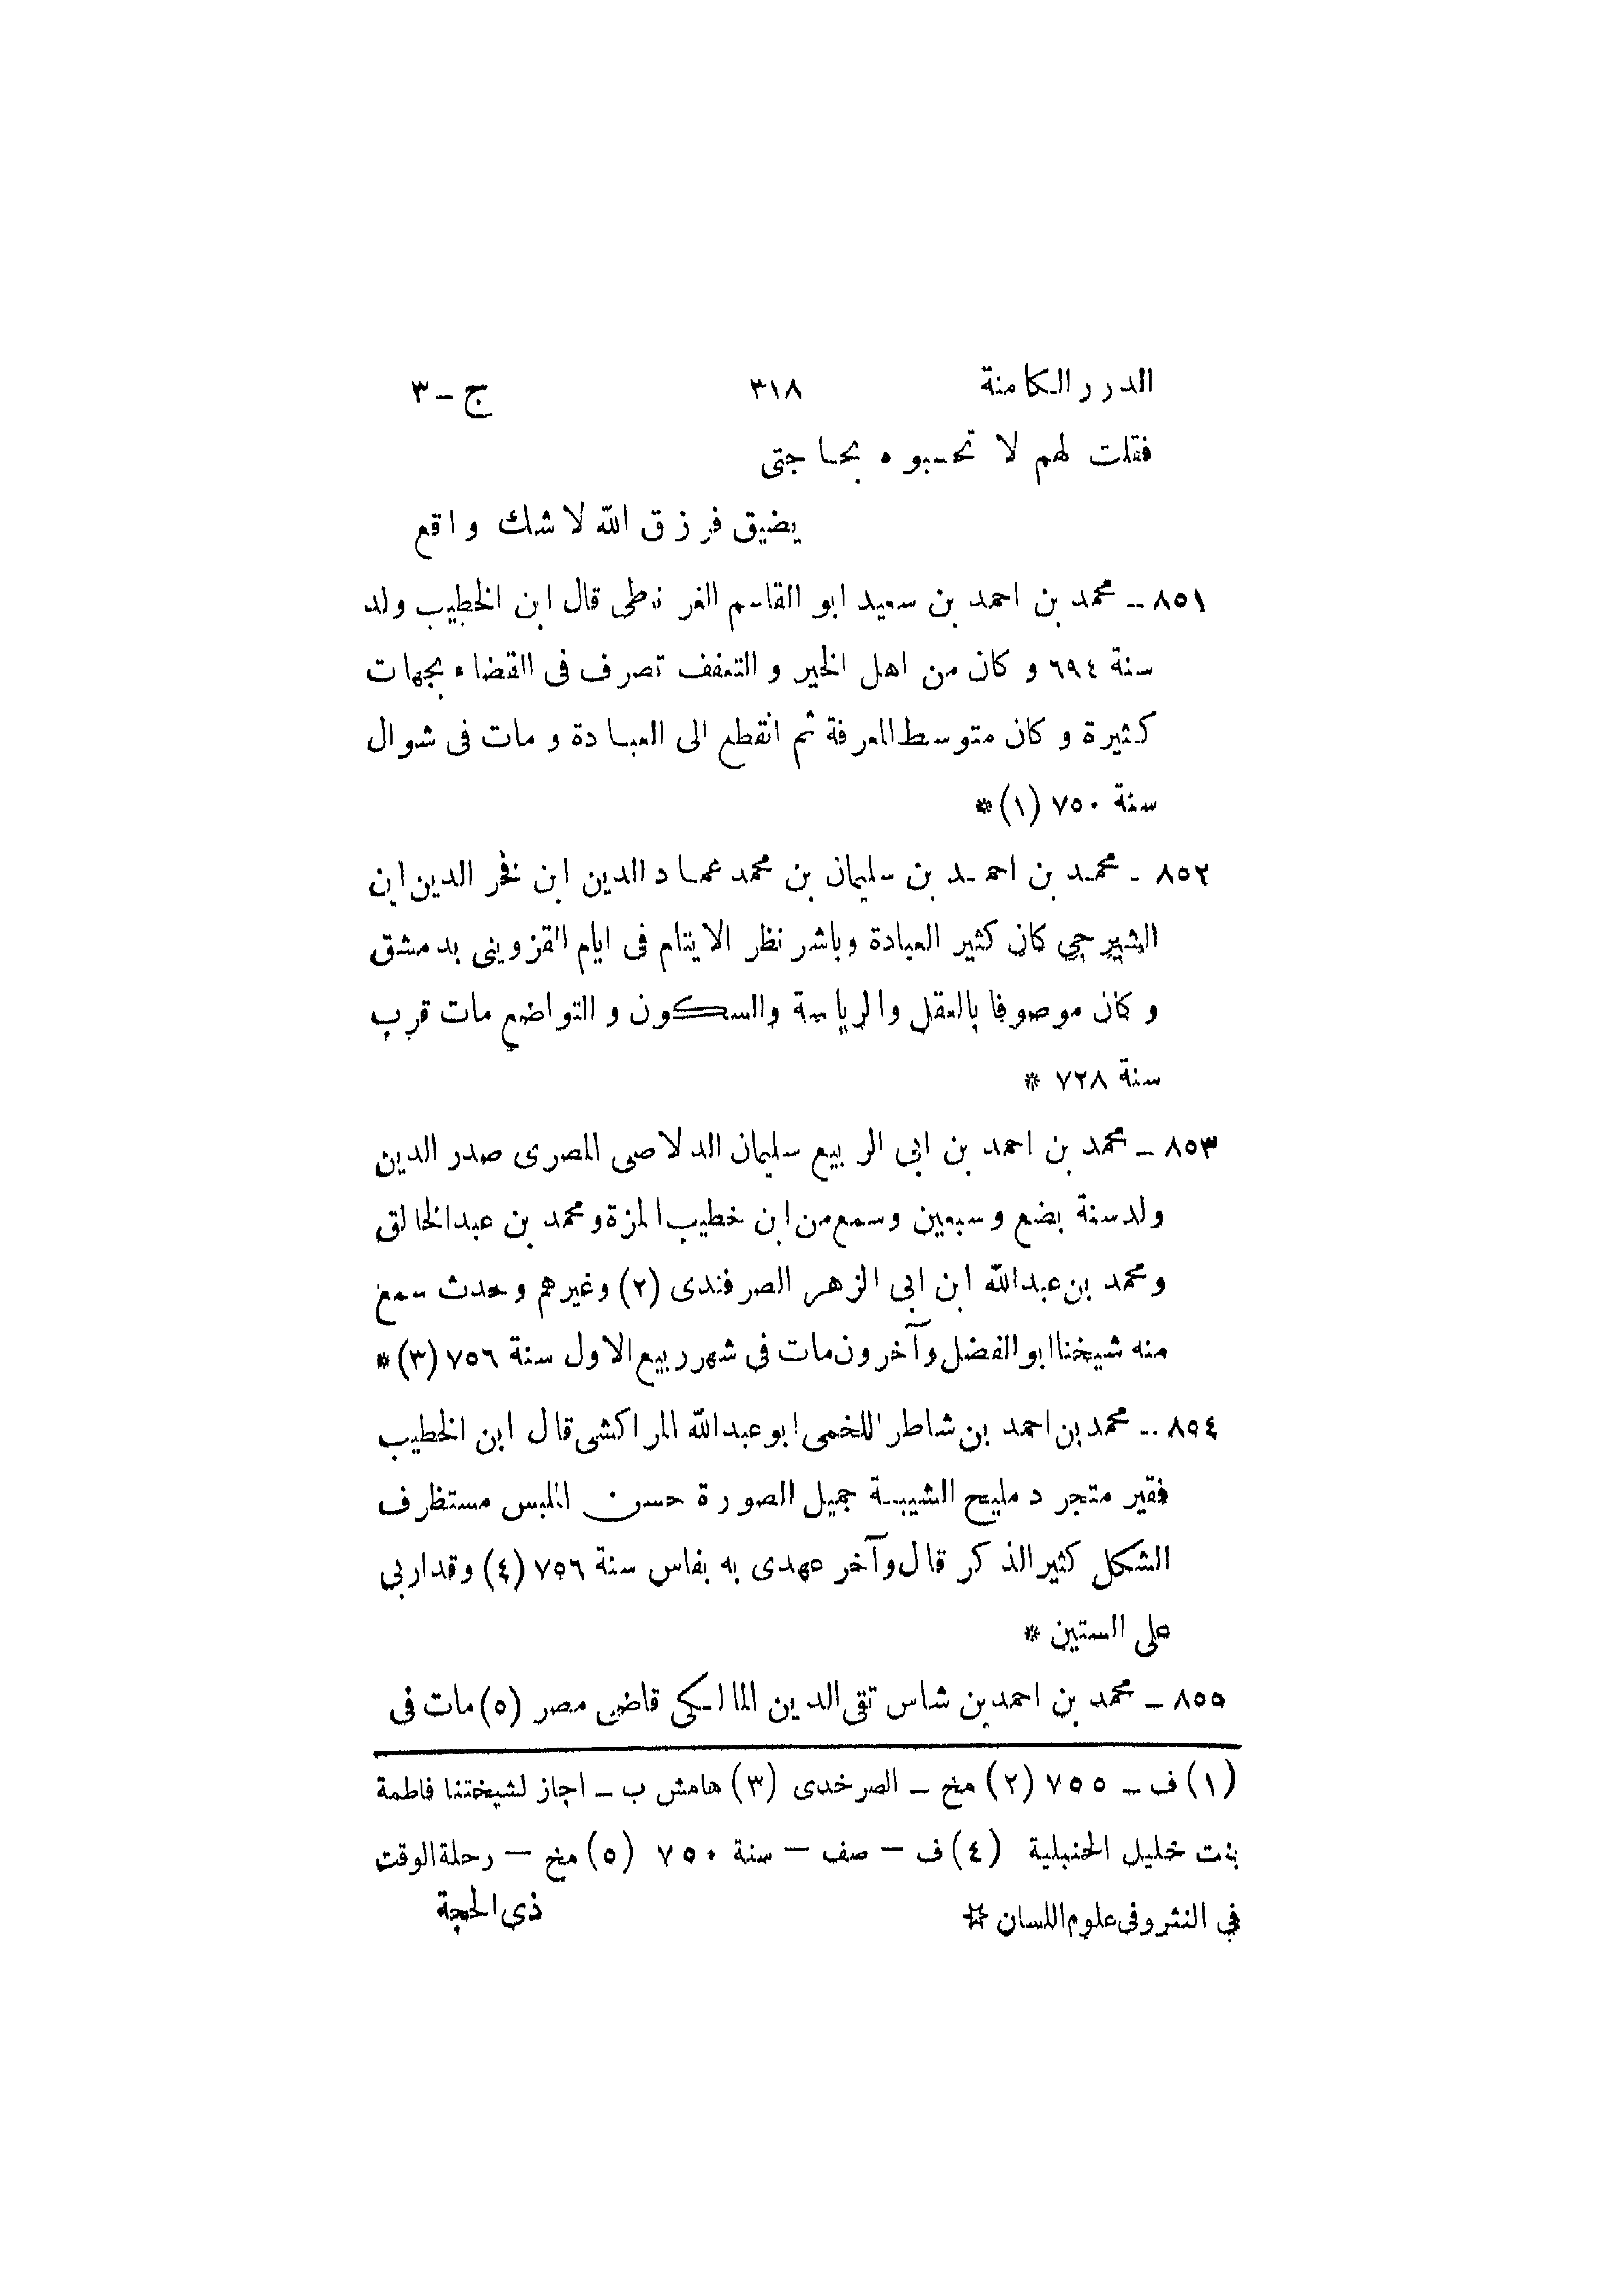 الدرر الكامنة ٣١٨ ج-٣
فقلت لهم لا تحسبوه بحاجتى
يضيق فرزق الله لا شك واقع
٨٥١ - محمد بن احمد بن سعيد ابو القاسم الغرناطى قال ابن الخطيب ولد
سنة ٦٩٤ و كان من اهل الخير و التعفف تصرف فى القضاء بجهات
كثيرة و كان متوسط المعرفة ثم انقطع الى العبادة و مات فى شوال
سنة ٧٥٠ (١)*
٨٥٢ - محمد بن احمد بن سليمان بن محمد عماد الدين ابن فخر الدين ابن
الشيرجي كان كثير العبادة وباشر نظر الايتام فى ايام القزوينى بدمشق
و كان موصوفا بالعقل والرياسة والسكون و التواضع مات قرب
سنة ٧٢٨ *
٨٥٣ - محمد بن احمد بن ابى الربيع سليمان الدلاصى المصرى صدر الدين
ولد سنة بضع وسبعين وسمع من ابن خطيب المزة ومحمد بن عبد الخالق
ومحمد بن عبد الله ابن ابى الزهر الصرفندى (٢) وغيرهم وحدث سمع
منه شيخنا ابو الفضل وآخرون مات فى شهر ربيع الاول سنة ٧٥٦ (٣)*
٨٥٤ - محمد بن احمد بن شاطر اللخمى ابو عبد الله المراكشى قال ابن الخطيب
فقير متجرد مليح الشيبة جميل الصورة حسن الملبس مستظرف
الشكل كثير الذكر قال وآخر عهدى به بفاس سنة ٧٥٦ (٤) وقد اربى
على الستين *
٨٥٥ - محمد بن احمد بن شاس تقى الدين المالكى قاضى مصر (٥) مات فى
(١) ف - ٧٥٥ (٢) مخ - الصرخدى (٣) هامش ب - اجاز لشيختنا فاطمة
بنت خليل الحنبلية (٤) ف - صف - سنة ٧٥٠ (٥) مخ - رحلة الوقت
في النثر وفى علوم اللسان * ذى الحجة